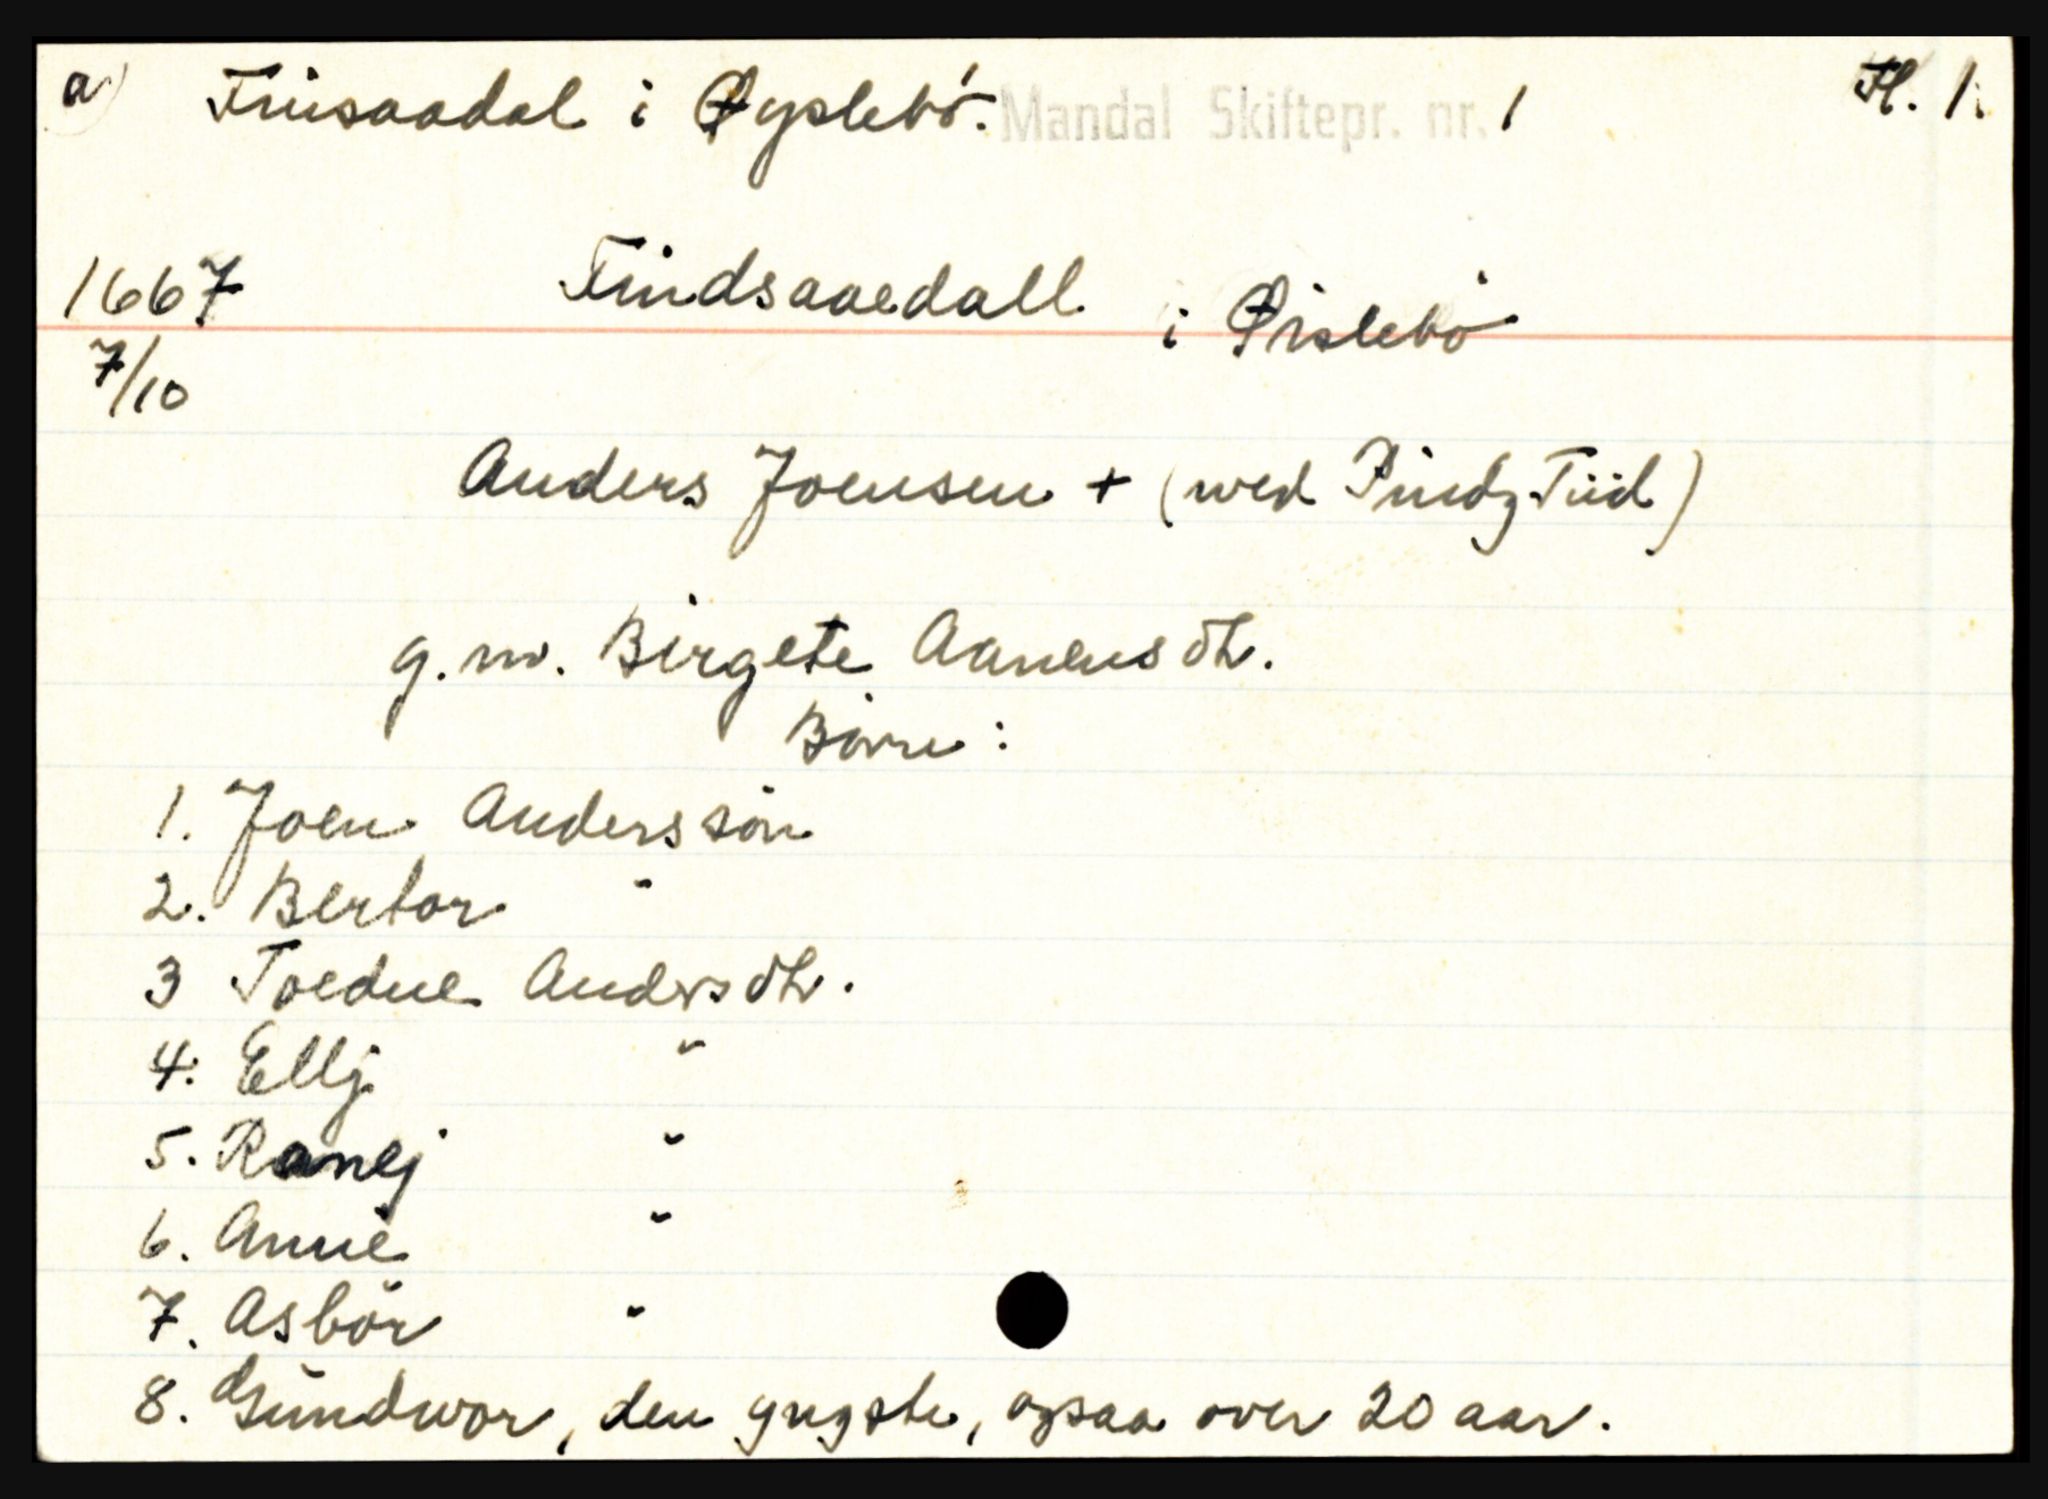 a) Finsaadal i Øyslebö. Mandal Skiftepr. nr. 1 Fl. 1.
1667 Findsaaedall i Øislebö
7/10
Anders Joensen + (wed Pindz Tiid)
g. m. Birgete Aanensdtr.
Börn:
1. Joen Anderssön
2. Bertor "
3 Toedne Andersdtr.
4. Ellj "
5. Ranej "
6. Anne "
7. Asbör "
8. Gundwor, den yngste, ogsaa over 20 aar.